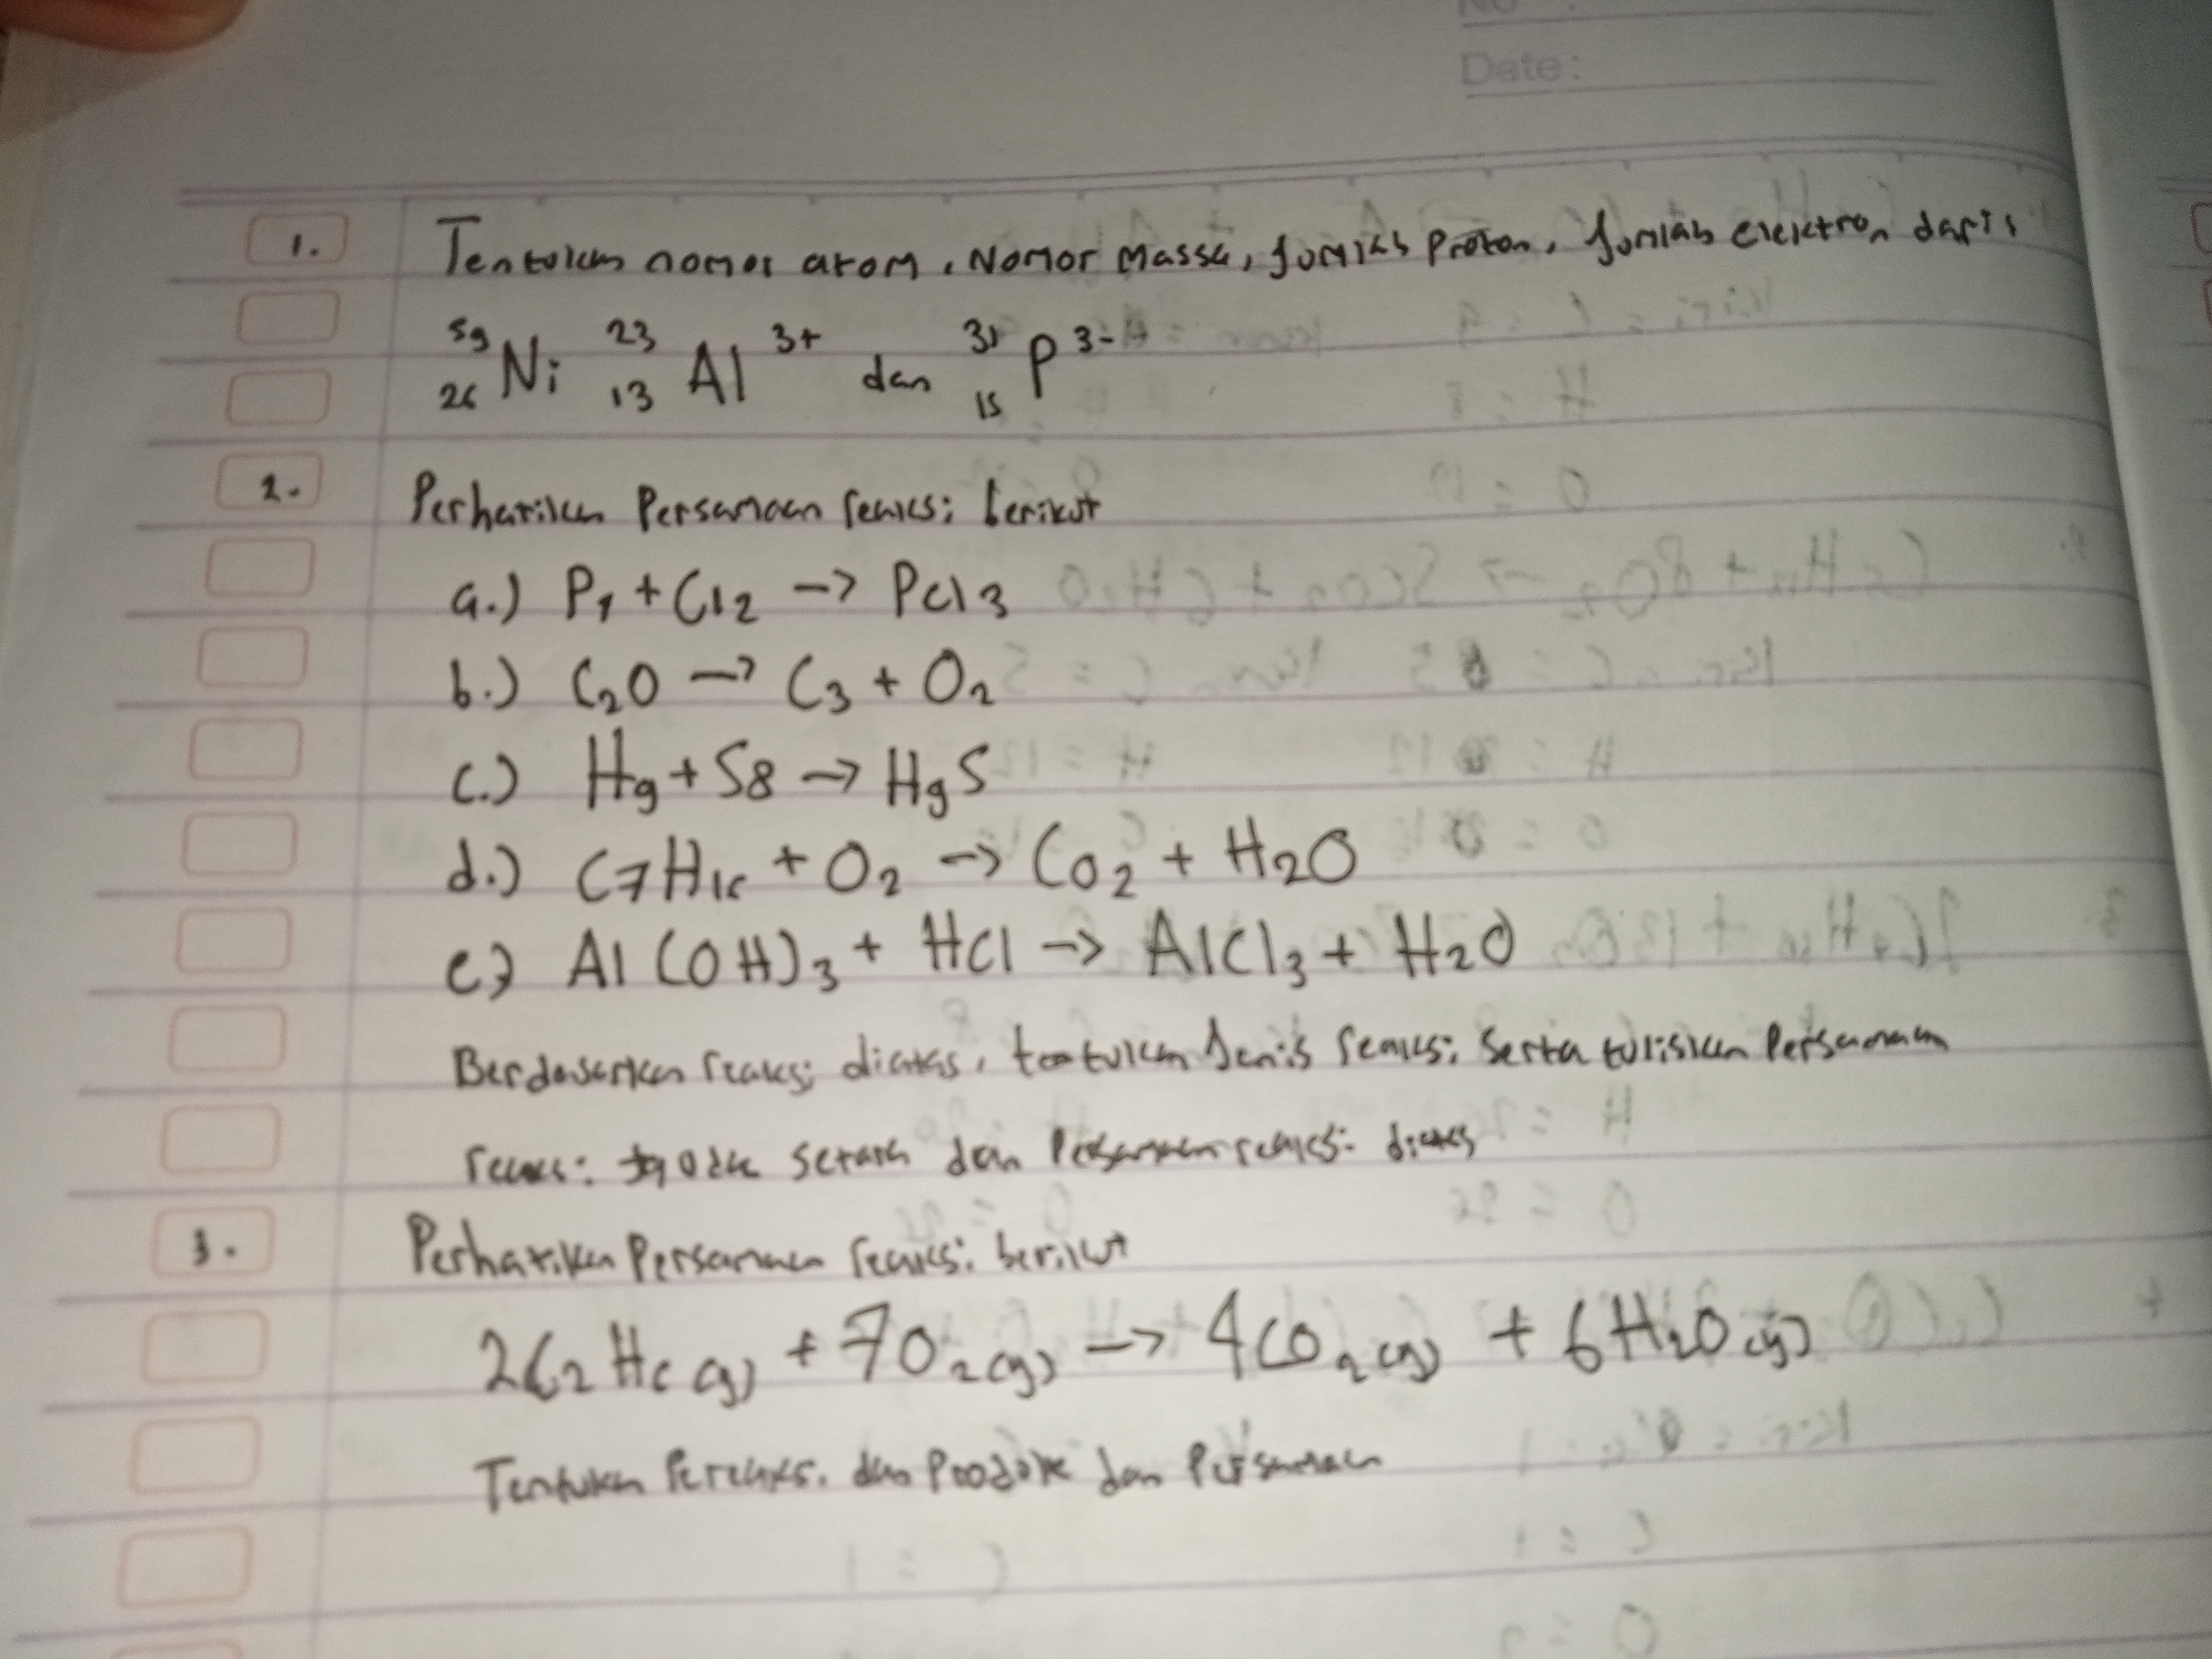 No :
Date :
1. Tentukan nomor atom, Nomor Massa, Jumlah Proton, Jumlah elektron dari :
59 26 Ni 23 13 Al 3+ dan 31 15 P 3-
2. Perhatikan Persamaan reaksi berikut
a.) P4 + Cl2 -> PCl3
b.) C2O -> C3 + O2
c.) Hg + S8 -> HgS
d.) C7H16 + O2 -> CO2 + H2O
e) Al(OH)3 + HCl -> AlCl3 + H2O
Berdasarkan reaksi diatas, tentukan Jenis reaksi serta tuliskan Persamaan
reaksi setara dan Persamaan reaksi diatas
3. Perhatikan Persamaan reaksi berikut
2C2H6(g) + 7O2(g) -> 4CO2(g) + 6H2O(g)
Tentukan Pereaksi dan Produk dan Persamaan